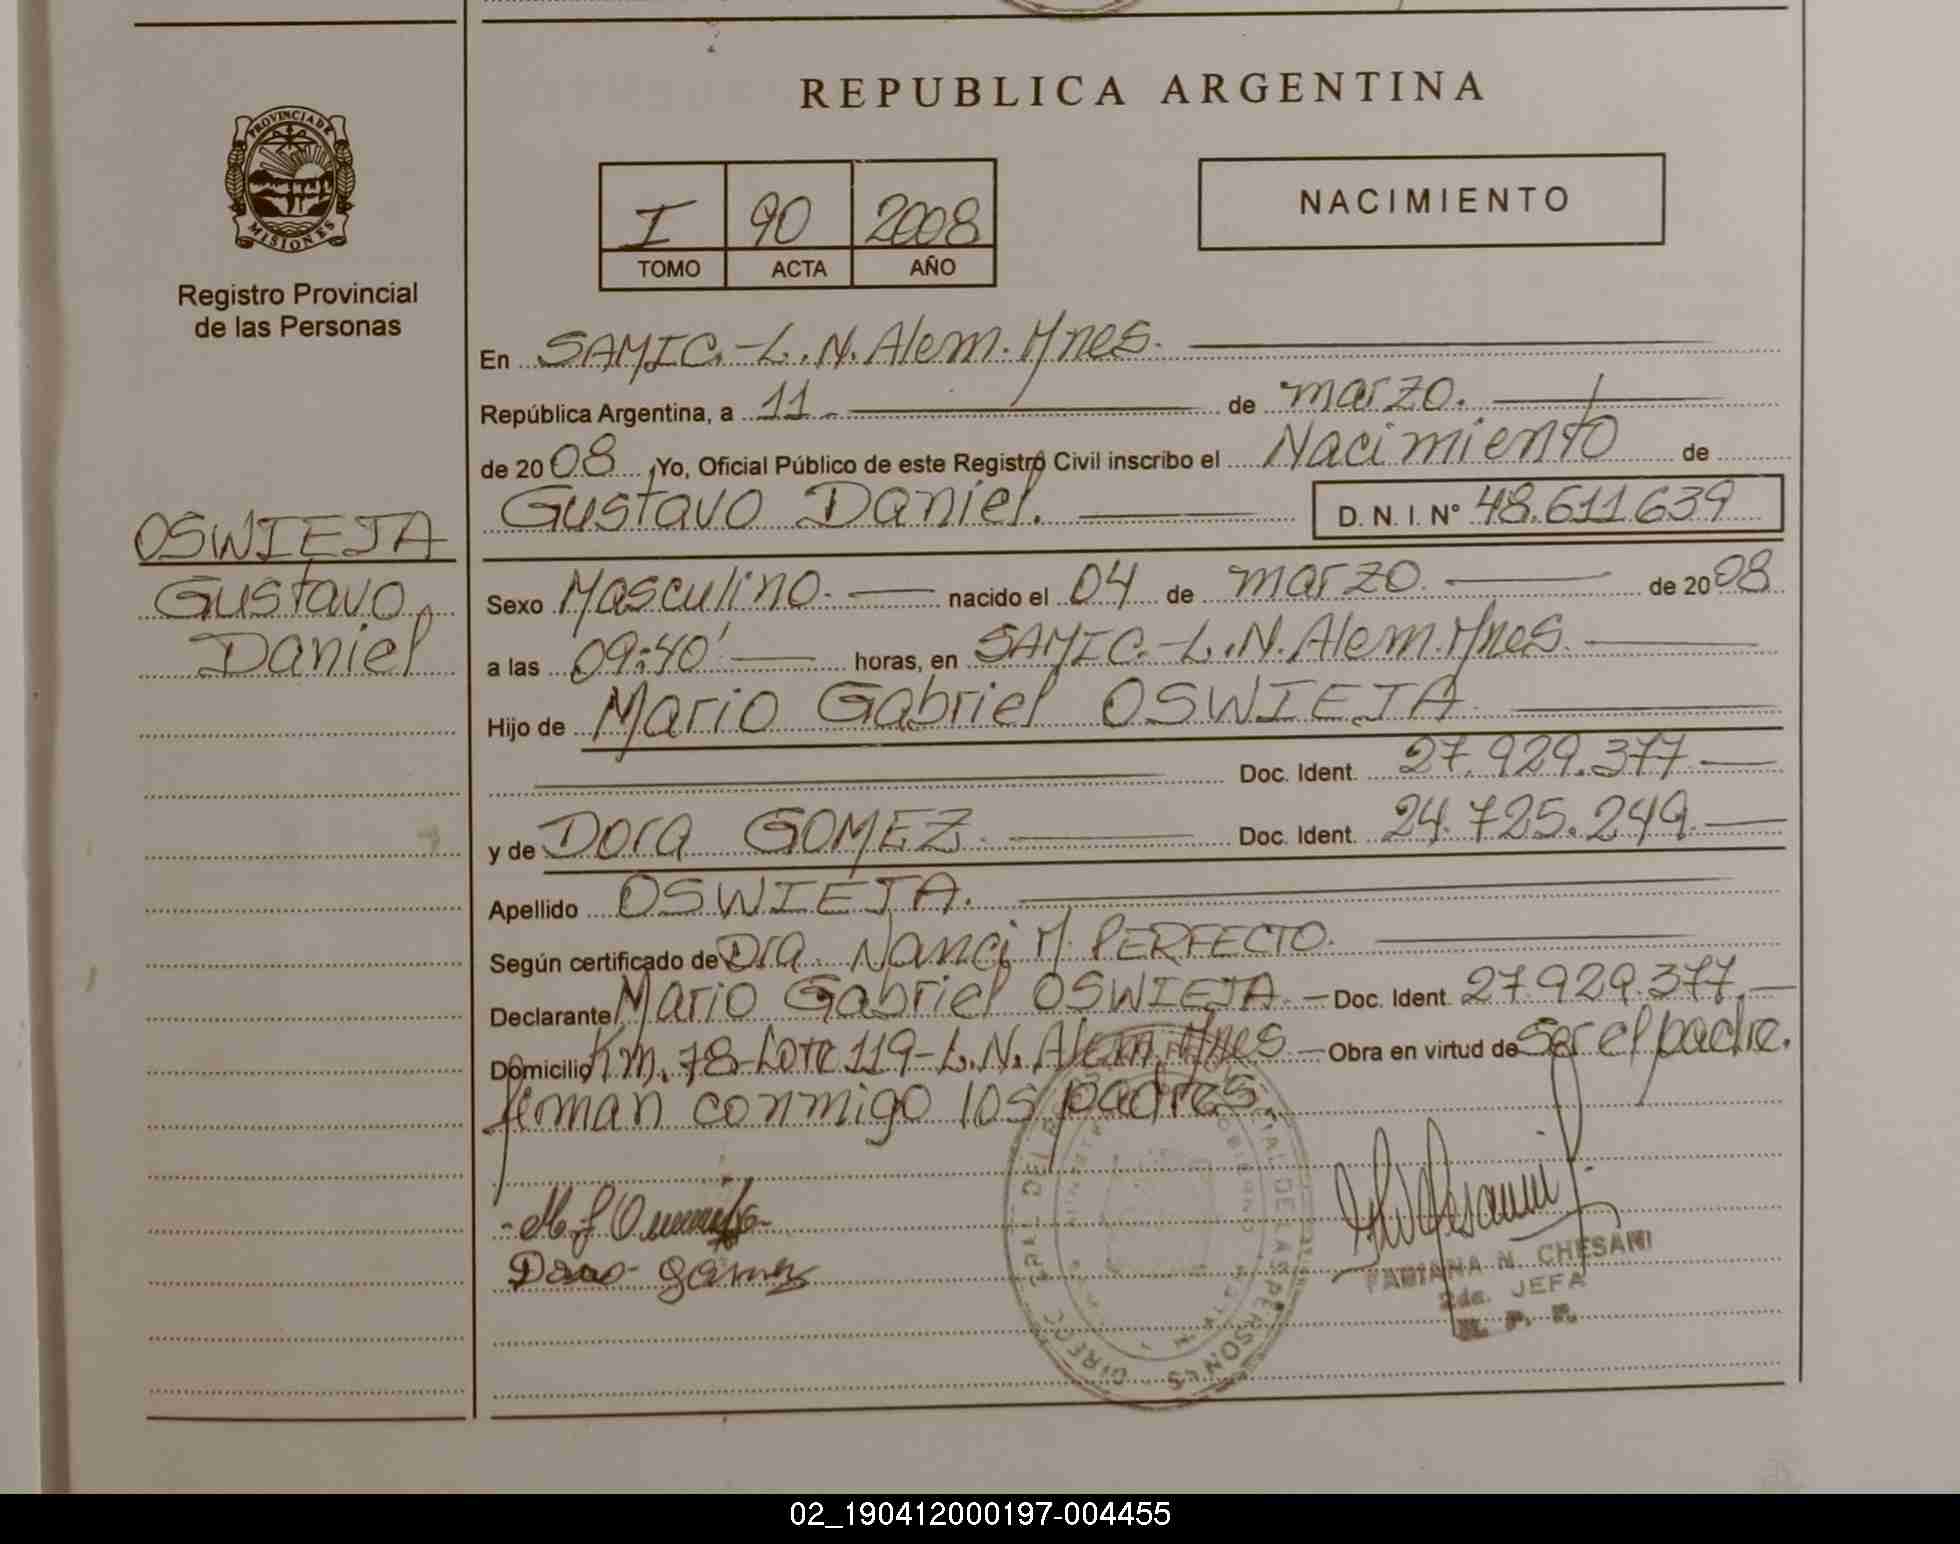 REPUBLICA ARGENTINA
PROVINCIA DE
MISIONES
Registro Provincial
de las Personas
I 90 2008
TOMO ACTA AÑO
NACIMIENTO
En SAMIC.-L.N.Alem.Mnes.
República Argentina, a 11 de marzo.
de 2008, Yo, Oficial Público de este Registro Civil inscribo el Nacimiento de
Gustavo Daniel. D. N. I. N° 48.611.639
OSWIEJA
Gustavo
Daniel
Sexo Masculino. nacido el 04 de marzo. de 2008
a las 09:40' horas, en SAMIC.-L.N.Alem.Mnes.
Hijo de Mario Gabriel OSWIEJA
Doc. Ident. 27.929.377
y de Dora GOMEZ. Doc. Ident. 24.725.249.
Apellido OSWIEJA.
Según certificado de Dra. Nanci M. PERFECTO.
Declarante Mario Gabriel OSWIEJA. Doc. Ident. 27.929.377.
Domicilio Km. 78-Lote 119-L.N. Alem. Mnes Obra en virtud de Ser el padre.
firman conmigo los padres.
FABIANA N. CHESANI
2da. JEFA
02_190412000197-004455